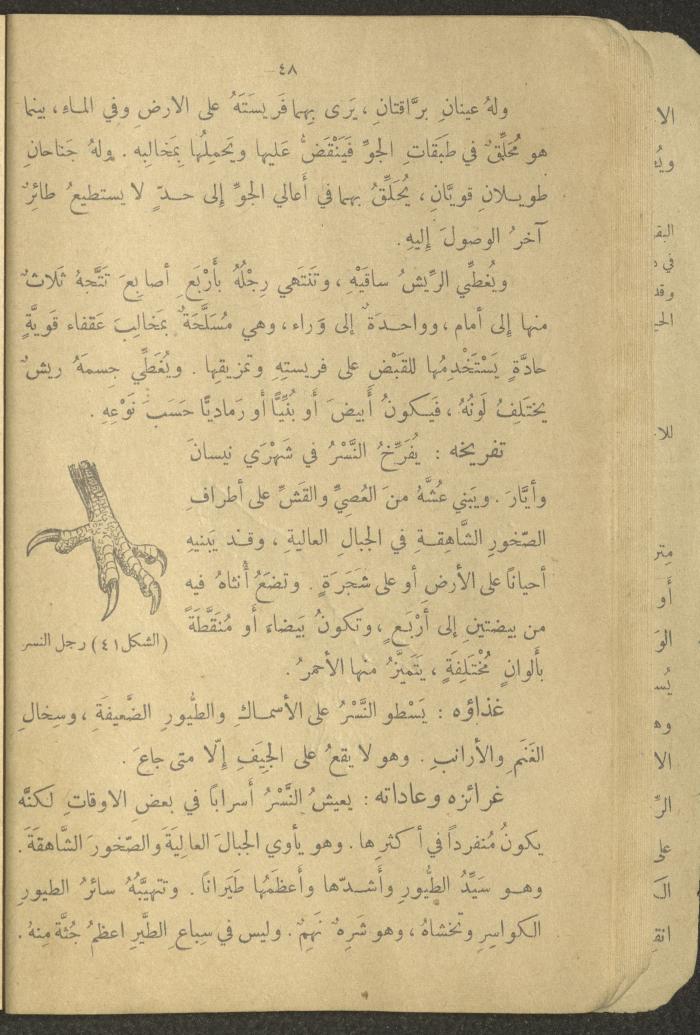 ٤٨
ولهُ عينانِ برَّاقتانِ ، يَرى بِهما فَريسَتَهُ على الارضِ وفي الماءِ ، بينما
هو مُحَلِّقٌ في طبَقاتِ الجوِّ فَيَنْقَضُّ عَليها ويَحمِلُها بِمَخالِبهِ . ولهُ جَناحانِ
طويـلانِ قويَّانِ ، يُحَلِّقُ بهما في أَعالي الجوِّ إلى حـدٍّ لا يستطيعُ طائِرٌ
آخرُ الوصولَ إليهِ .
ويُغطِّي الرِّيشُ ساقَيْهِ ، وتَنتَهي رِجْلُهُ بأَرْبَعِ أصابِعَ تَتَّجهُ ثَلاثٌ
منها إلى أمام ، وواحـدَةٌ إلى وَراء ، وهي مُسَلَّحَةٌ بمَخالِبَ عَقفاء قَويَّةٍ
حادَّةٍ يَسْتَخْدِمُها للقَبْضِ على فريستِهِ وتمزيقِها . ويُغَطِّي جِسمَهُ ريشٌ
يختَلِفُ لَونُهُ ، فَيَـكونُ أَبيضَ أَو بُنِّيًّا أَو رَماديًّا حَسَبَ نَوْعِهِ .
تفريخه : يُفَرِّخُ النَّسْرُ في شَهْرَي نيسانَ
وأَيَّارَ . ويَبني عُشَّهُ منَ العُصِيِّ والقَشِّ على أَطرافِ
الصّخورِ الشَّاهقـةِ في الجبالِ العاليةِ ، وقـد يَبنيهِ
أحياناً على الأرضِ أو على شَجَرَةٍ . وتضَعُ أُنثاهُ فيه
من بيضتينِ إلى أَرْبَعٍ ، وتكونُ بَيضاءَ أَو مُنَقَّطَةً
(الشكل ٤١) رجل النسر
بأَلوانٍ مُخْتَلِفَةٍ ، يَتَميَّزُ منها الأحمرُ .
غذاؤه : يَسْطو النَّسْرُ على الأسمـاكِ والطُّيورِ الضَّعيفَةِ ، وسِخالِ
الغَنَمِ والأرانبِ . وهو لا يقعُ على الجِيَفِ إِلَّا متى جاعَ .
غرائزه وعاداته : يعيشُ النَّسْرُ أَسراباً في بعضِ الاوقاتِ لكنَّهُ
يكونُ مُنفرداً في أَكثرِها . وهو يأوي الجبالَ العالِيَةَ والصّخورَ الشَّاهقَةَ .
وهـو سَيِّدُ الطُّيورِ وأَشـدّها وأَعظَمُها طَيَراناً . وتتهيَّبُهُ سائرُ الطيورِ
الكواسِرِ وتخشاهُ ، وهو شَرِهٌ نَهِمٌ . وليس في سِباعِ الطَّيرِ اعظمُ جُثَّة مِنهُ .